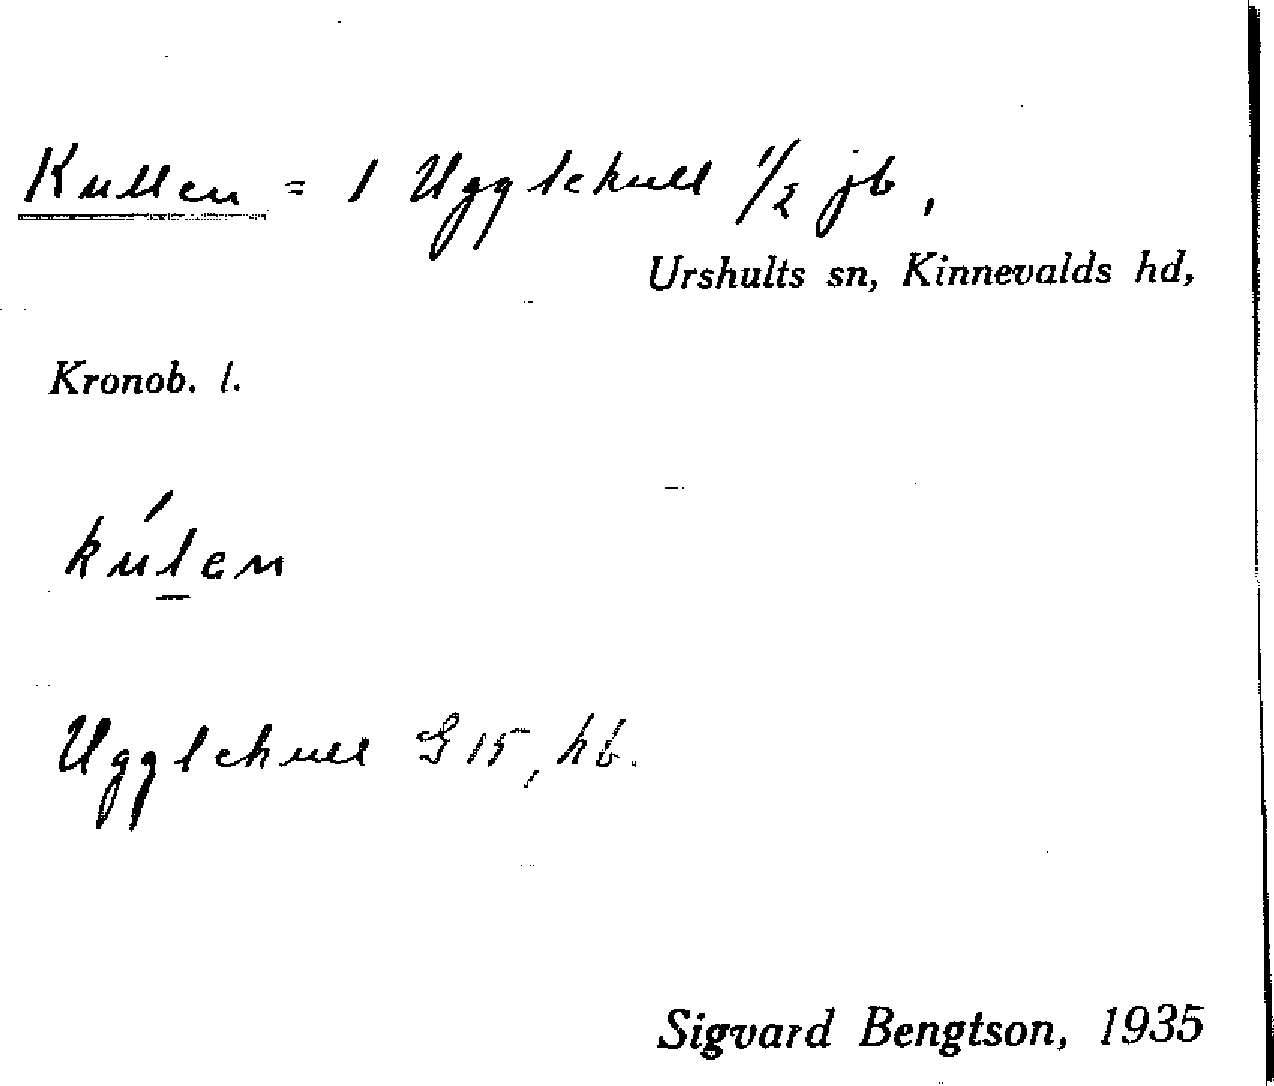 Kullen = 1 Ugglekull 1/2 jb,
Urshults sn, Kinnevalds hd,
Kronob. l.
kúlen
Ugglekull G 15, hb.
Sigvard Bengtson, 1935